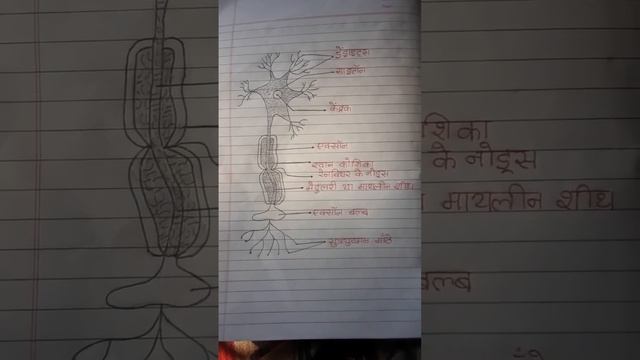 डेंड्राइट्स
साइटोन
केंद्रक
एक्सोन
श्वान कोशिका
रेनवियर के नोड्स
मेडुलरी या मायलीन शीथ
एक्सोन बल्ब
सूत्रयुग्मक गाँठे
शिका
के नोड्स
मायलीन शीथ
बल्ब